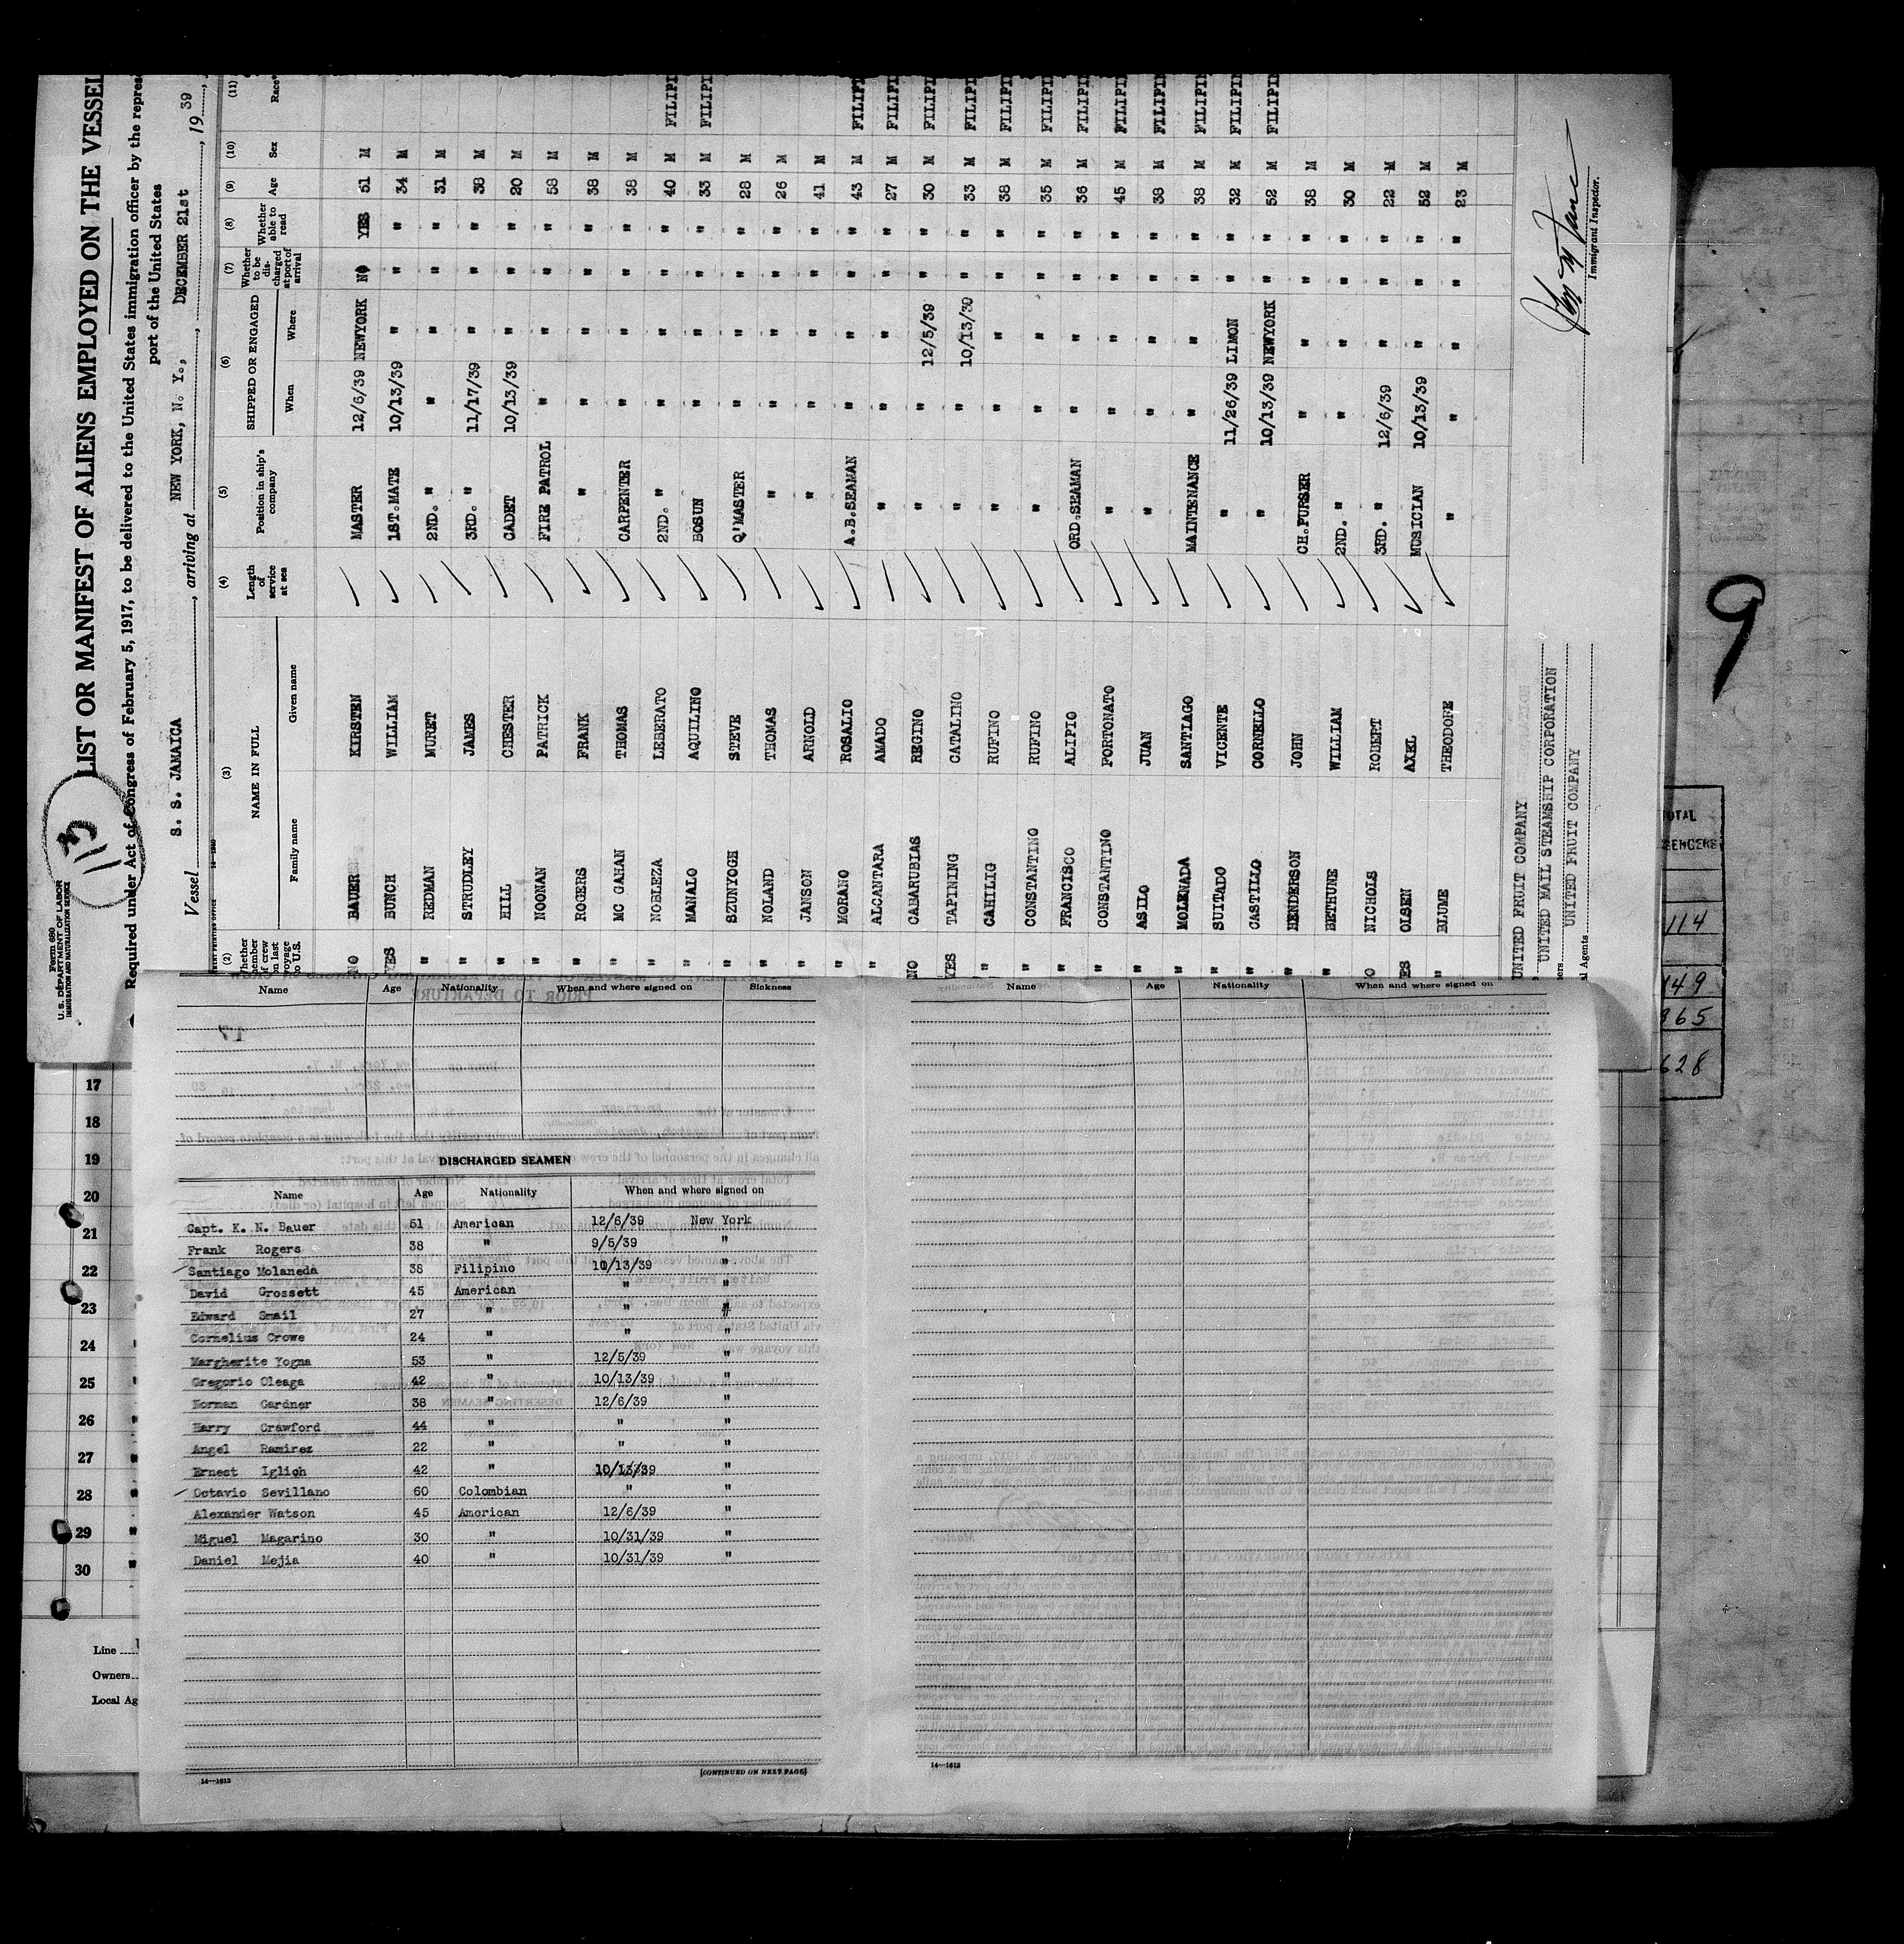 Form 680
U. S. DEPARTMENT OF LABOR
IMMIGRATION AND NATURALIZATION SERVICE
113
LIST OR MANIFEST OF ALIENS EMPLOYED ON THE VESSEL
Required under Act of Congress of February 5, 1917, to be delivered to the United States immigration officer by the
port of the United States
Vessel S. S. JAMAICA, arriving at NEW YORK, N. Y., DECEMBER 21st, 19 39
(2) (3) (4) (5) (6) (7) (8) (9) (10) (11)
Whether member of crew on last voyage to U.S. NAME IN FULL Family name Given name Length of service at sea Position in ship's company SHIPPED OR ENGAGED When Where Whether to be discharged at port of arrival Whether able to read Age Sex Race
NO BAUER KIRSTEN MASTER 12/6/39 NEWYORK NO YES 51 M
YES BUNCH WILLIAM 1ST.MATE 10/13/39 " " " 34 M
" REDMAN MURET 2ND. " " " " " 31 M
" STRUDLEY JAMES 3RD. " 11/17/39 " " " 38 M
" HILL CHESTER CADET 10/13/39 " " " 20 M
" NOONAN PATRICK FIRE PATROL " " " " 58 M
" ROGERS FRANK " " " " " 38 M
" MC GAHAN THOMAS CARPENTER " " " " 38 M
" NOBLEZA LEBERATO 2ND. " " " " " 40 M FILIPI
" MANALO AQUILINO BOSUN " " " " 33 M FILIPI
" SZUNYOGH STEVE Q'MASTER " " " " 28 M
" NOLAND THOMAS " " " " " 26 M
" JANSON ARNOLD " " " " " 41 M
" MORANO ROSALIO A.B.SEAMAN " " " " 43 M FILIPI
" ALCANTARA AMADO " " " " " 27 M FILIPI
NO CABARUBIAS REGINO " " 12/5/39 " " 30 M FILIPI
YES TAPINING CATALINO " " 10/13/39 " " 33 M FILIPI
" CAHILIG RUFINO " " " " " 38 M FILIPI
" CONSTANTINO RUFINO " " " " " 35 M FILIPI
" FRANCISCO ALIPIO ORD.SEAMAN " " " " 36 M FILIPI
" CONSTANTINO FORTONATO " " " " " 45 M FILIPI
" ASILO JUAN " " " " " 38 M FILIPI
" MOLENADA SANTIAGO MAINTENANCE " " " " 38 M FILIPI
" SUITADO VICENTE " 11/26/39 LIMON " " 32 M FILIPI
" CASTILLO CORNELLO " 10/13/39 NEWYORK " " 52 M FILIPI
" HENDERSON JOHN CH.PURSER " " " " 38 M
" BETHUNE WILLIAM 2ND. " " " " " 30 M
NO NICHOLS ROBERT 3RD. " 12/6/39 " " " 22 M
YES OLSEN AXEL MUSICIAN 10/13/39 " " " 52 M
" BLUME THEODORE " " " " " 23 M
UNITED FRUIT COMPANY
UNITED MAIL STEAMSHIP CORPORATION
UNITED FRUIT COMPANY
Immigrant Inspector.
9
114
149
365
628
Name Age Nationality When and where signed on Sickness
Name Age Nationality When and where signed on
DISCHARGED SEAMEN
Name Age Nationality When and where signed on
Capt. K. N. Bauer 51 American 12/6/39 New York
Frank Rogers 38 " 9/5/39 "
Santiago Molaneda 38 Filipino 10/13/39 "
David Grossett 45 American " "
Edward Smail 27 " " "
Cornelius Crowe 24 " " "
Margherite Yogna 53 " 12/5/39 "
Gregorio Oleaga 42 " 10/13/39 "
Norman Gardner 38 " 12/6/39 "
Harry Crawford 44 " " "
Angel Ramirez 22 " " "
Ernest Iglich 42 " 10/13/39 "
Octavio Sevillano 60 Colombian " "
Alexander Watson 45 American 12/6/39 "
Miguel Magarino 30 " 10/31/39 "
Daniel Mejia 40 " 10/31/39 "
14—1613
(CONTINUED ON NEXT PAGE)
14—1613
17
18
19
20
21
22
23
24
25
26
27
28
29
30
Line
Owners
Local Ag